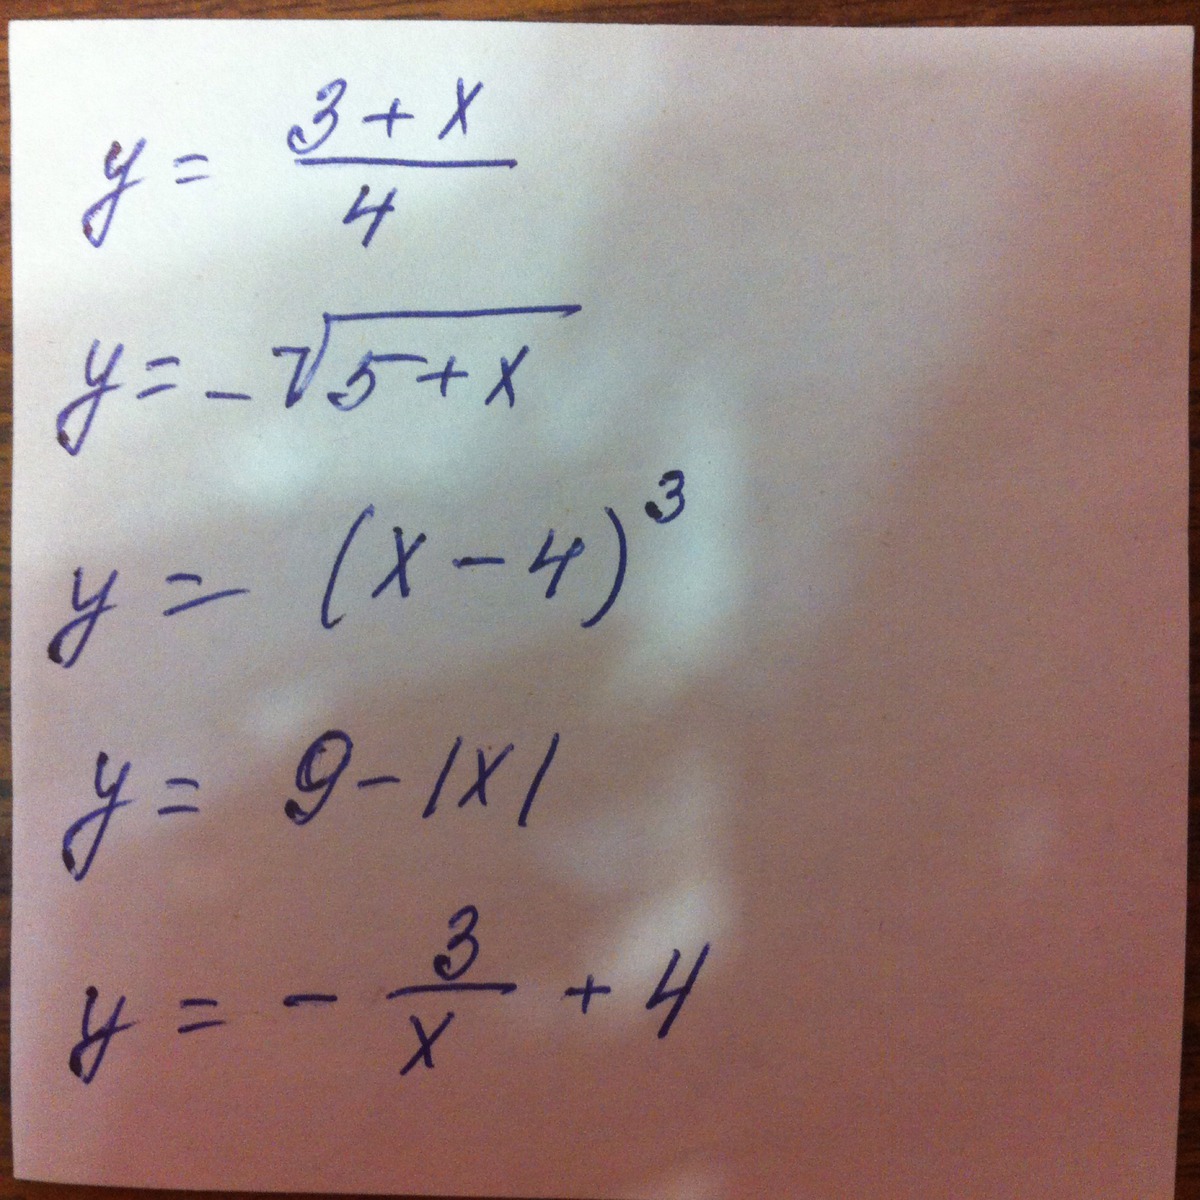 y = (3 + x)/4
y = -√(5 + x)
y = (x - 4)³
y = 9 - |x|
y = - 3/x + 4